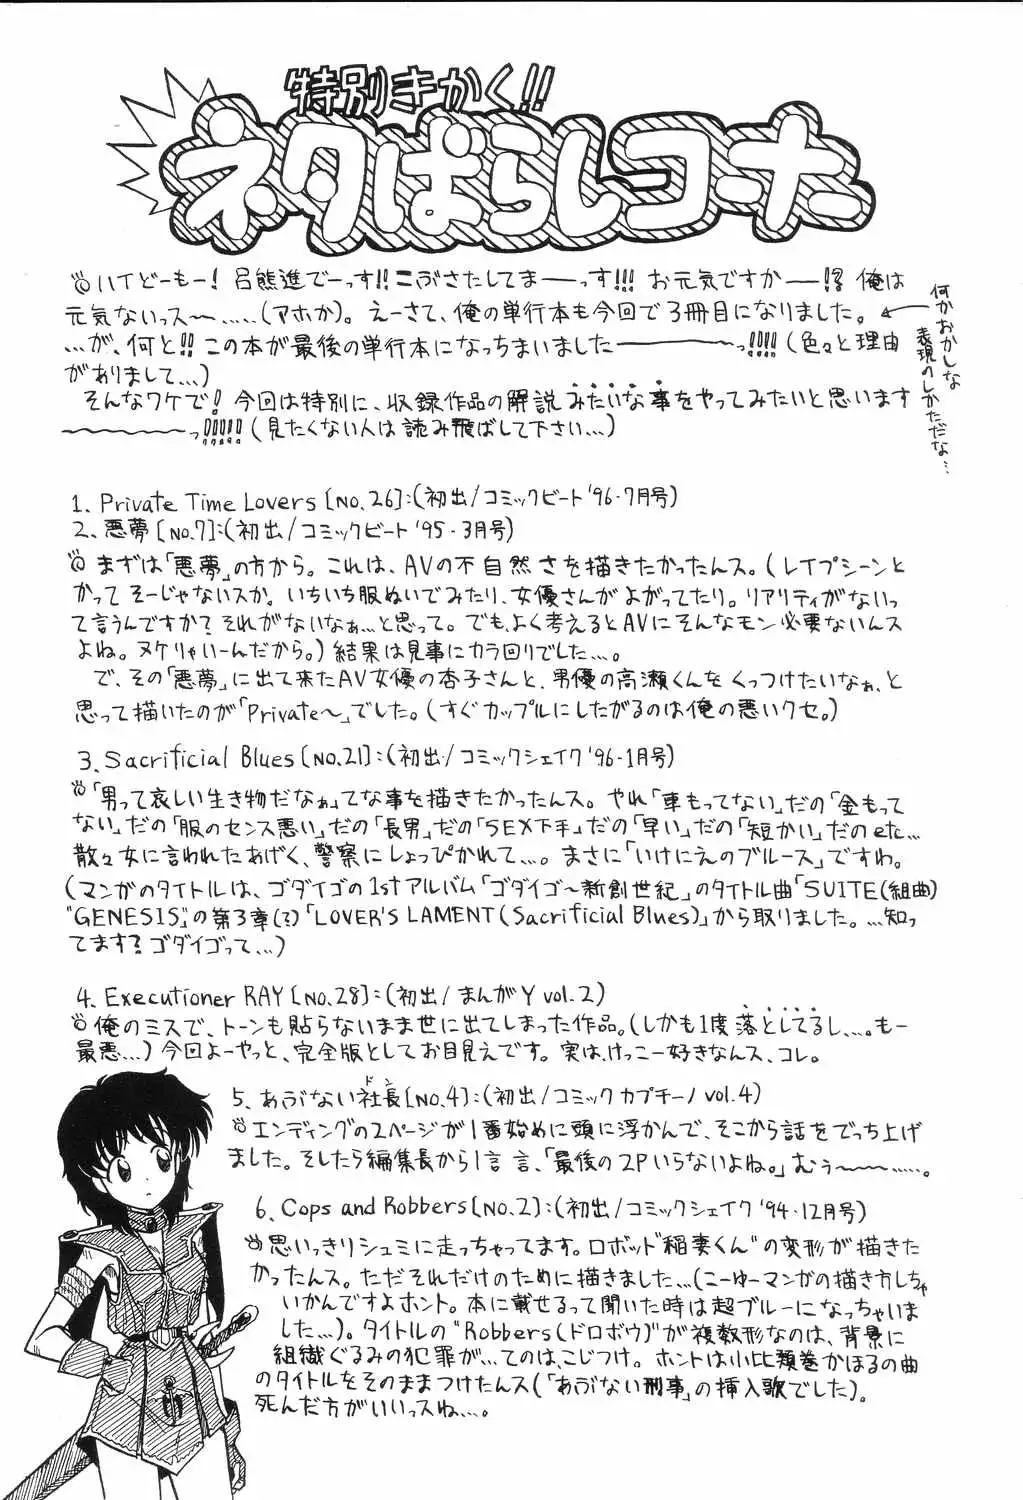 特別きかく!!
ネタばらしコーナー
ハイどーもー! 呂熊進でーっす!! こぶさたしてまーーっす!!! お元気ですかーー!? 俺は
元気ないっスー……(アホか)。えーさて、俺の単行本も今回で3冊目になりました。
…が、何と!! この本が最後の単行本になっちまいましたーーっ!!!! (色々と理由
がありまして…)
何かおかしな
表現のしかただな…
そんなワケで! 今回は特別に、収録作品の解説みたいな事をやってみたいと思います
〜〜〜っ!!!! (見たくない人は読み飛ばして下さい…)
1. Private Time Lovers [NO.26]:(初出/コミックビート'96-7月号)
2. 悪夢[NO.7]:(初出/コミックビート'95-3月号)
まずは「悪夢」の方から。これは、AVの不自然さを描きたかったんス。(レイプシーンと
かって そーじゃないスか。いちいち服ぬいでみたり、女優さんがよがってたり。リアリティがないっ
て言うんですか? それがないなぁ…と思って。でも、よく考えるとAVにそんなモン必要ないんス
よね。ヌケりゃいーんだから。) 結果は見事にカラ回りでした…。
で、その「悪夢」に出て来たAV女優の杏子さんと、男優の高瀬くんをくっつけたいなぁ、と
思って描いたのが「Private〜」でした。(すぐカップルにしたがるのは俺の悪いクセ。)
3. Sacrificial Blues [NO.21]:(初出/コミックシェイク'96-1月号)
「男って哀しい生き物だなぁ」てな事を描きたかったんス。やれ「車もってない」だの「金もって
ない」だの「服のセンス悪い」だの「長男」だの「SEX下手」だの「早い」だの「短かい」だのetc…
散々女に言われたあげく、警察にしょっぴかれて…。まさに「いけにえのブルース」ですわ。
(マンガのタイトルは、ゴダイゴの1stアルバム「ゴダイゴ〜新創世紀」のタイトル曲「SUITE(組曲)
"GENESIS"」の第3章(?)「LOVER'S LAMENT (Sacrificial Blues)」から取りました。…知っ
てます? ゴダイゴって…)
4. Executioner RAY [NO.28]:(初出/まんがY vol.2)
俺のミスで、トーンも貼らないまま世に出てしまった作品。(しかも1度落としてるし…。もー
最悪…) 今回よーやっと、完全版としてお目見えです。実は、けっこー好きなんス、コレ。
5. あぶない社長(ドン)[NO.4]:(初出/コミックカプチーノ vol.4)
エンディングの2ページが1番始めに頭に浮かんで、そこから話をでっち上げ
ました。そしたら編集長から1言言、「最後の2Pいらないよね。」むぅーーー……。
6. Cops and Robbers [NO.2]:(初出/コミックシェイク'94-12月号)
思いっきりシュミに走っちゃってます。ロボット"稲妻くん"の変形が描きた
かったんス。ただそれだけのために描きました…(こーゆーマンガの描き方しちゃ
いかんですよホント。本に載せるって聞いた時は超ブルーになっちゃいま
した…)。タイトルの"Robbers(ドロボウ)"が複数形なのは、背景に
組織ぐるみの犯罪が…てのは、こじつけ。ホントは小比類巻かほるの曲
のタイトルをそのままつけたんス(「あぶない刑事」の挿入歌でした)。
死んだ方がいいっスね…。